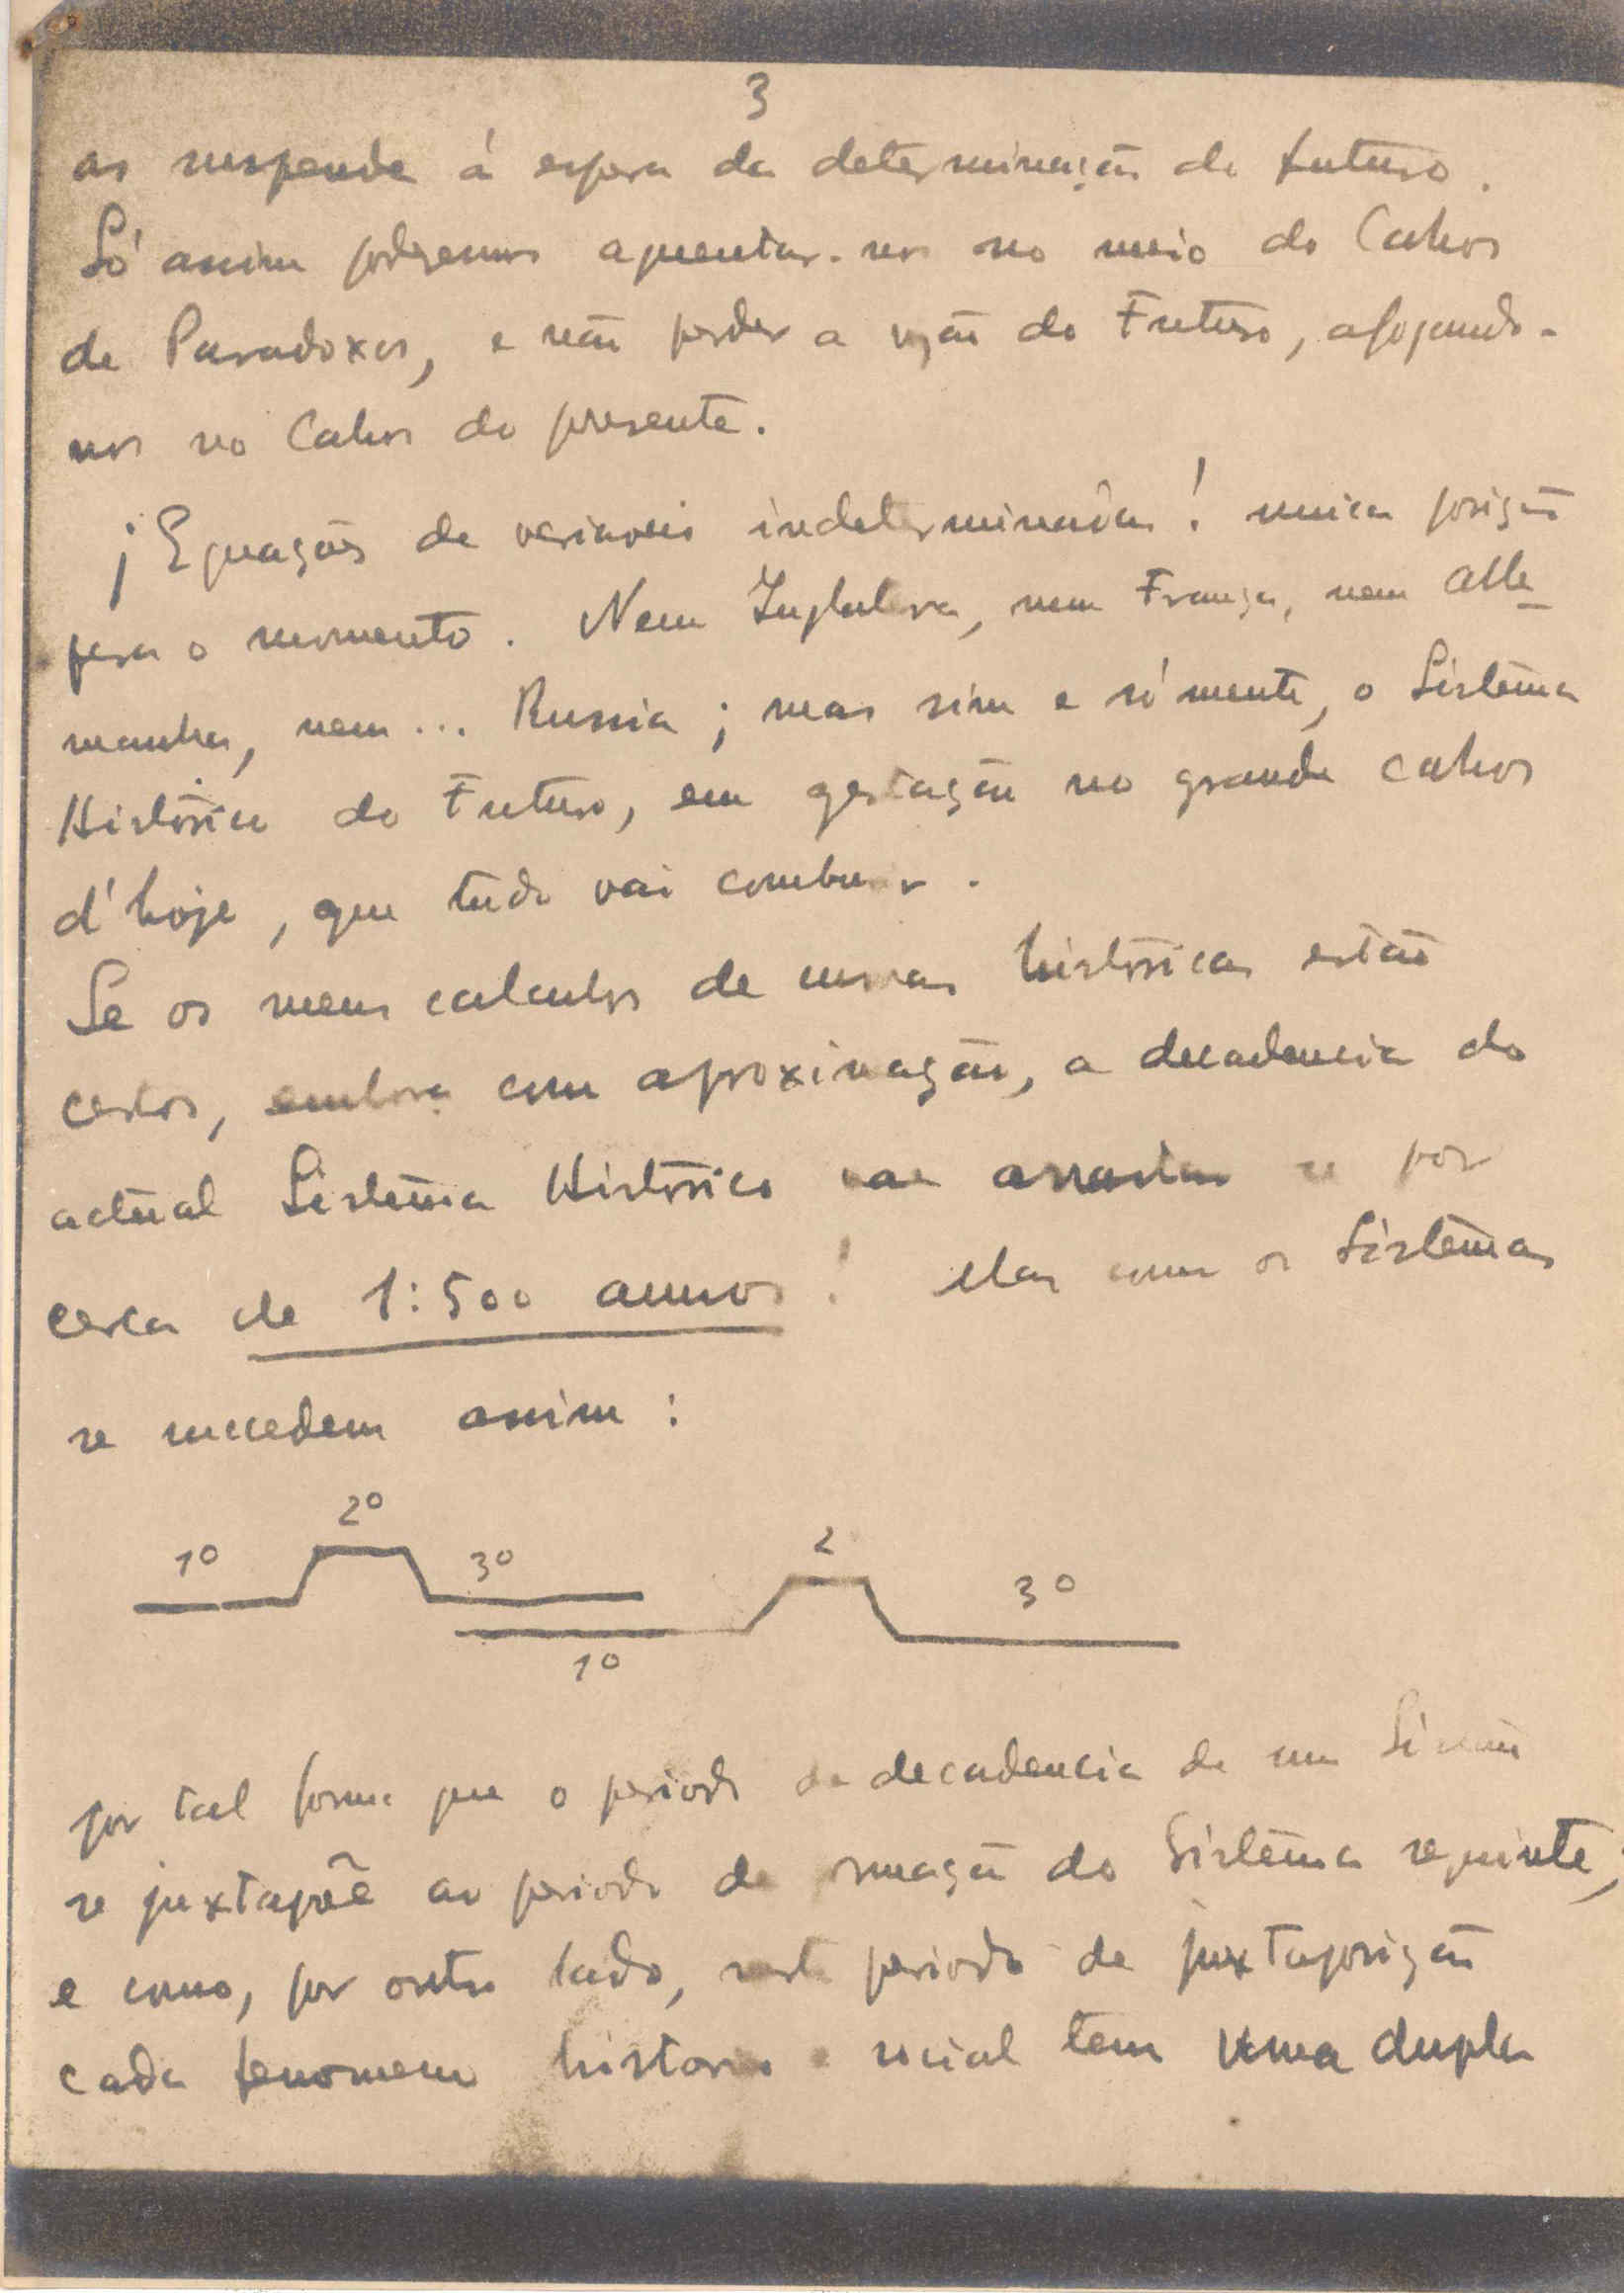 3
as suspende á espera da determinação do futuro.
Só assim poderemos aguentar-nos no meio do Cahos
de Paradoxos, e não perder a visão do Futuro, afogando-
nos no Cahos do presente.
¡Equações de variaveis indeterminadas! unica posição
para o momento. Nem Inglaterra, nem França, nem Alle-
manha, nem... Russia; mas sim e só mente, o Sistema
Histórico do Futuro, em gestação no grande cahos
d'hoje, que tudo vai comburir.
Se os meus calculos de curvas históricas estão
certos, embora com aproximação, a decadencia do
actual Sistema Histórico vae arrastar se por
cerca de 1:500 annos! Mas como os Sistemas
se succedem assim:
1º 2º 3º 2 3º
1º
por tal forma que o periodo de decadencia de um Sistema
se juxtapõe ao periodo de formação do Sistema seguinte;
e como, por outro lado, neste periodo de juxtaposição
cada fenomeno historico social tem uma dupla